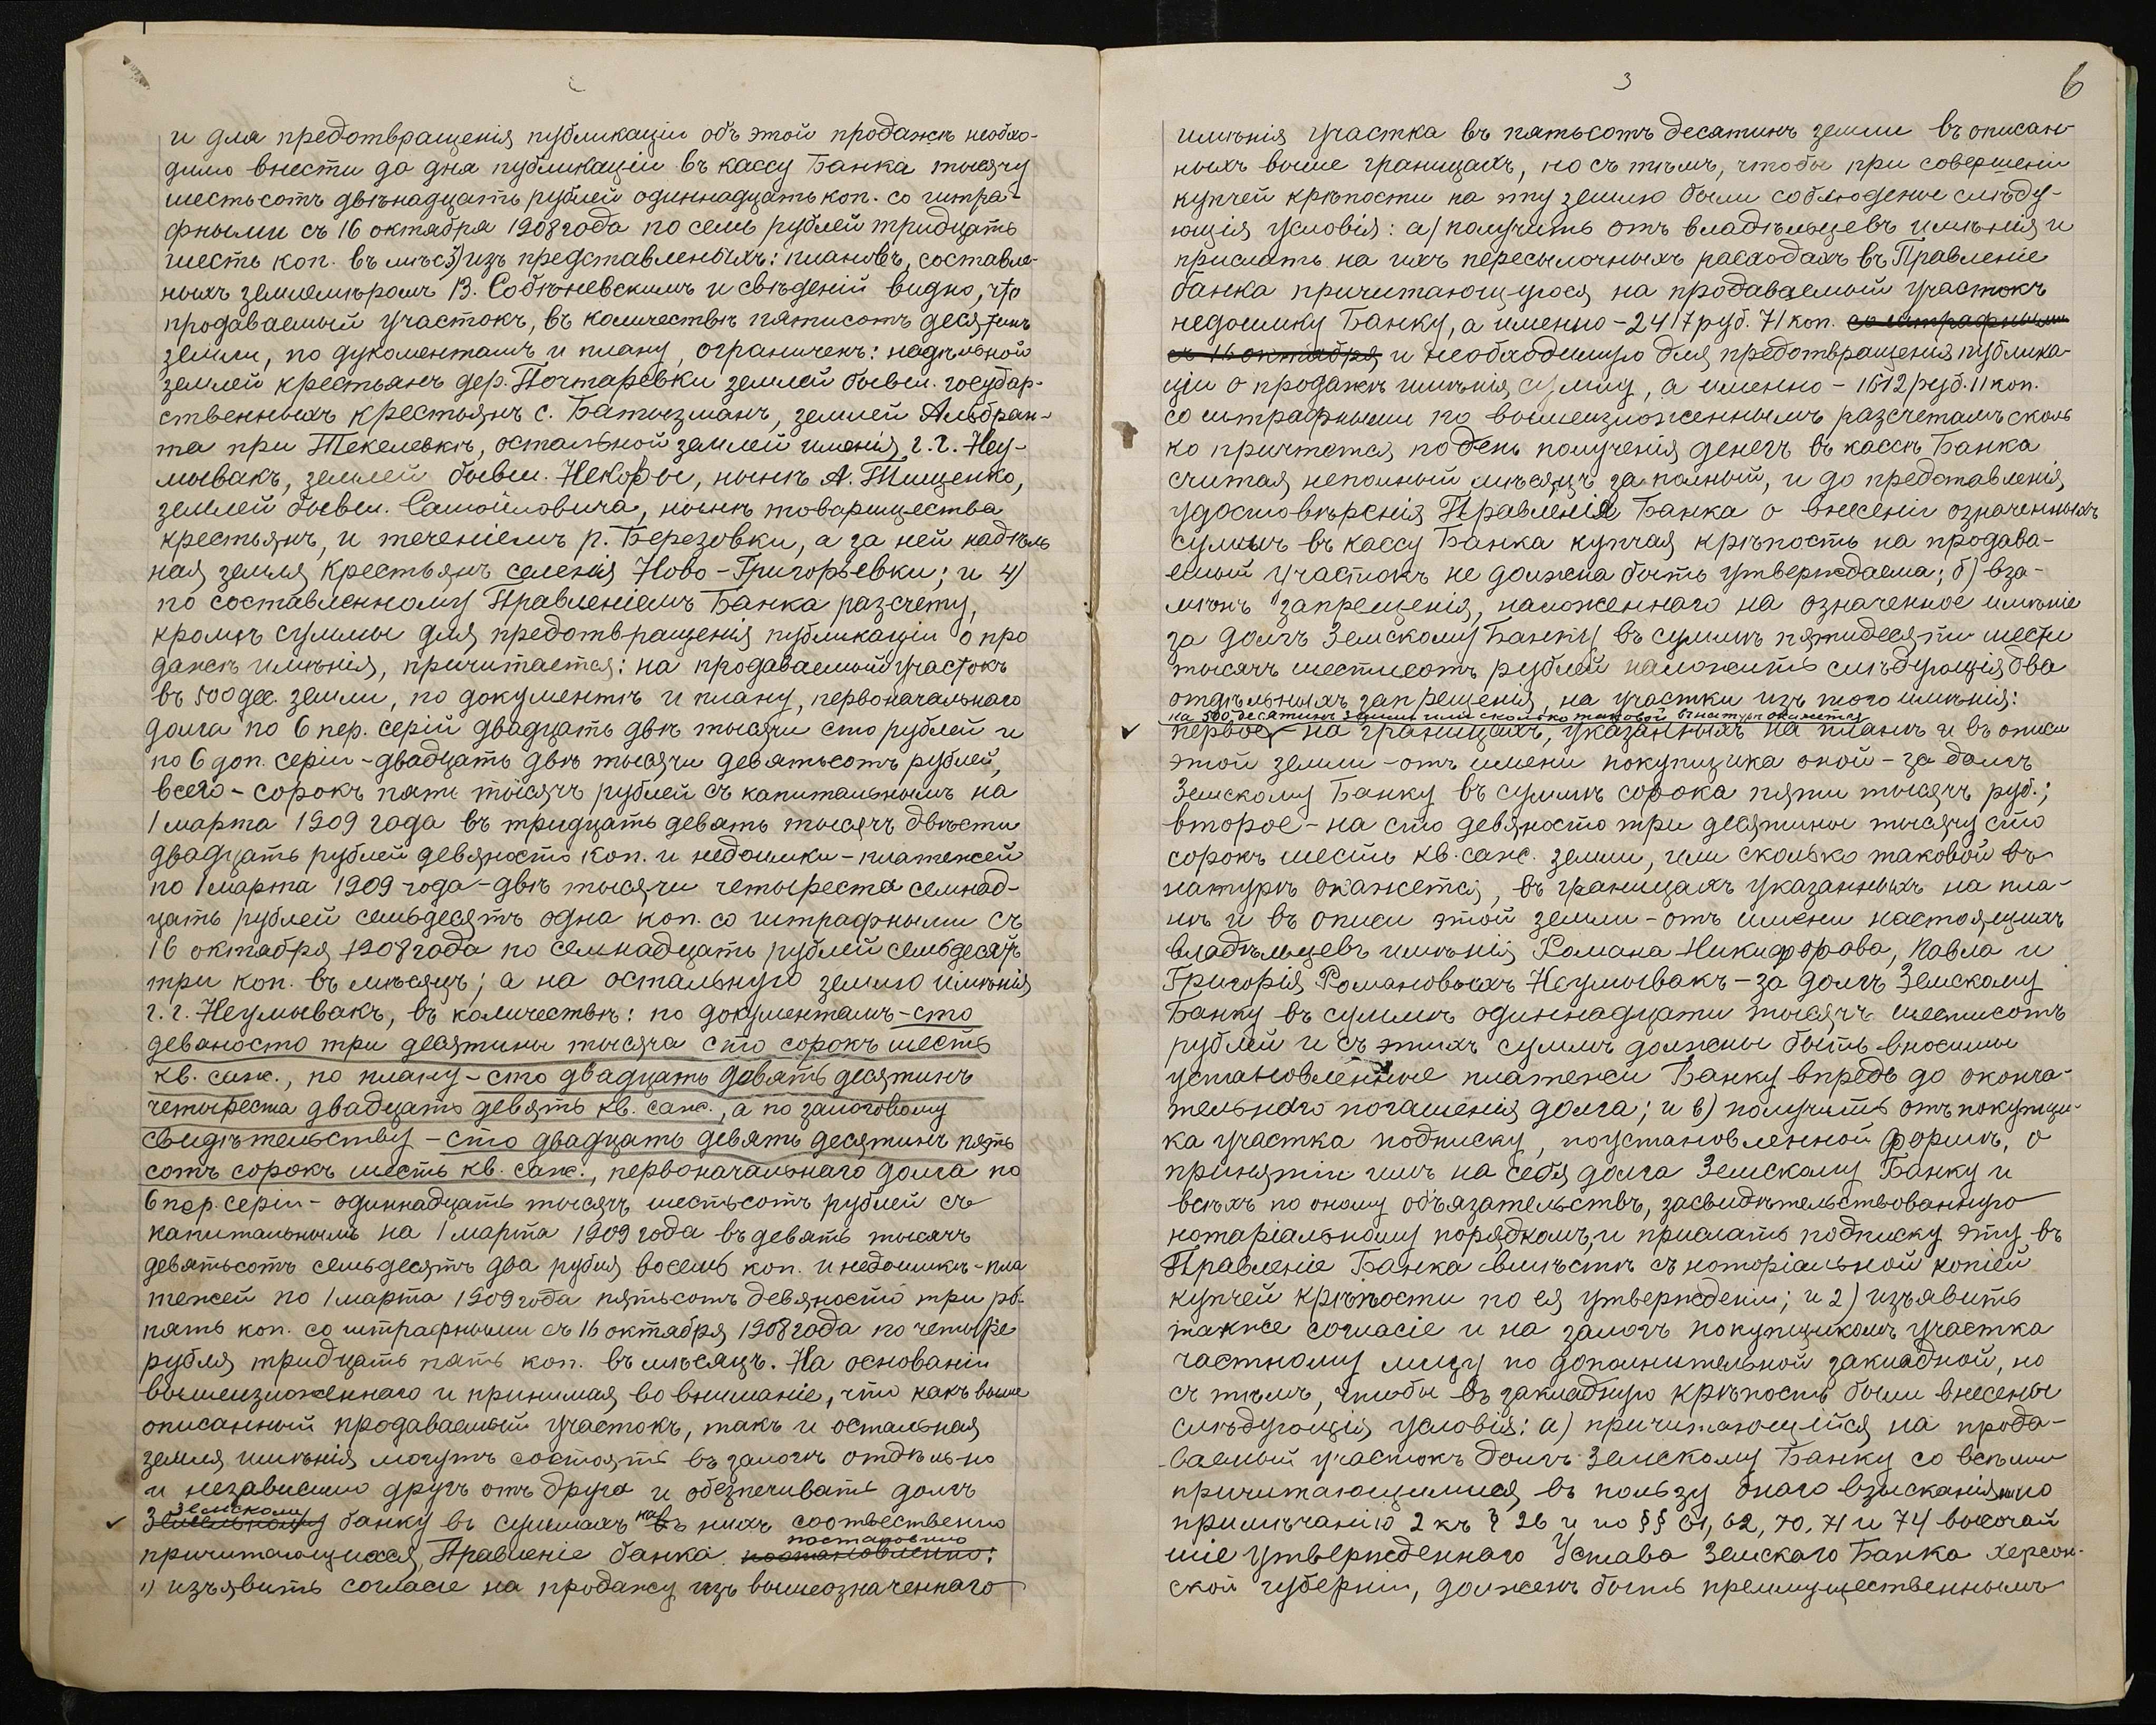 и для предотвращенія публикаціи объ этой продажѣ необхо-
димо внести до дня публикаціи въ кассу Банка тысячу
шестьсотъ двѣнадцать рублей одиннадцать коп. со штра-
фными съ 16 октября 1908 года по семь рублей тридцать
шесть коп. въ мѣс 3) изъ представленыхъ: плановъ, составле-
ныхъ землемѣромъ В. Собѣневскимъ и свѣденій видно, что
продаваемый участокъ, въ количествѣ пятисотъ десятинъ
земли, по дукоментамъ и плану, ограниченъ: надѣльной
землей крестьянъ дер. Почтаревки землей бывш. государ-
ственныхъ крестьянъ с. Батызманъ, землей Альбран-
та при Текелевкѣ, остальной землей именія г.г. Неу-
мывакъ, землей бывш. Некоры, нынѣ А. Тищенко,
землей бывш. Самойловича, нынѣ товарищества
крестьянъ, и теченіемъ р. Березовки, а за ней надѣль
ная земля крестьянъ селенія Ново-Григорьевки; и 4)
по составленному Правленіемъ Банка разсчету,
кромѣ суммы для предотвращенія публикаціи о про
дажѣ имѣнія, причитается: на продаваемый участокъ
въ 500 дес. земли, по документѣ и плану, первоначальнаго
долга по 6 пер. серій двадцать двѣ тысячи сто рублей и
по 6 доп. серіи - двадцать двѣ тысячи девятьсотъ рублей,
всего - сорокъ пять тысячъ рублей съ капитальнымъ на
1 марта 1909 года въ тридцать девять тысячъ двѣсти
двадцать рублей девяносто коп. и недоимки - платежей
по 1 марта 1909 года - двѣ тысячи четыреста семнад-
цать рублей семьдесятъ одна коп. со штрафными съ
16 октября 1908 года по семнадцать рублей семьдесятъ
три коп. въ мѣсяцъ; а на остальную землю имѣнія
г.г. Неумывакъ, въ количествѣ: по документамъ - сто
деваносто три десятины тысяча сто сорокъ шесть
кв. саж., по плану - сто двадцать девять десятинъ
четыреста двадцать девять кв. саж., а по залоговому
свидѣтельству - сто двадцать девять десятинъ пять
сотъ сорокъ шесть кв. саж., первоначальнаго долга по
6 пер. серіи - одиннадцать тысячъ шестьсотъ рублей съ
капитальнымъ на 1 марта 1909 года въ девять тысячъ
девятьсотъ семьдесятъ два рубля восемь коп. и недоимкъ - пла
тежей по 1 марта 1909 года пятьсотъ девяносто три рб.
пять коп. со штрафными съ 16 октября 1908 года по четыре
рубля тридцать пять коп. въ мѣсяцъ. На основаніи
вышеизложеннаго и принимая во вниманіе, что какъ выше
описанный продаваемый участокъ, такъ и остальная
земля имѣнія могутъ состоять въ залогѣ отдѣльно
и независимо другъ отъ друга и обезпечивать долгъ
Земскому
банку въ суммахъ на нихъ соотвественно
постановило
причитающихся, Правленіе банка постановленно:
1) изъявить согласіе на продажу изъ вышеозначеннаго
3
6
имѣнія участка въ пятьсотъ десятинъ земли въ описан-
ныхъ выше границахъ, но съ тѣмъ, чтобы при совершеніи
купчей крѣпости на эту землю были соблюдены слѣду-
ющія условія: а) получить отъ владѣльцевъ имѣнія и
прислать на ихъ пересылочныхъ расходахъ въ Правленіе
банка причитающуюся на продаваемый участокъ
недоимку Банку, а именно - 2417 руб. 71 коп. со штрафными
съ 16 октября и необходимую для предотвращенія публика-
ціи о продажѣ имѣнія, сумму, а именно - 1612 руб. 11 коп.
со штрафными по вышеизложеннымъ разсчетамъ сколь
ко причтется по день полученія денегъ въ кассѣ Банка
считая неполный мѣсяцъ за полный, и до представленія
удостовѣренія Правленія Банка о внесеніи означенныхъ
суммъ въ кассу Банка купчая крѣпость на продава-
емый участокъ не должна быть утверждаема; б) вза-
мѣнъ запрещенія, наложеннаго на означенное имѣніе
за долгъ Земскому Банку въ суммѣ пятидесяти шести
тысячъ шестисотъ рублей наложить слѣдующія два
отдѣльныхъ запрещенія, на участки изъ того имѣнія:
на 500 десятинъ земли или сколько таковой въ натурѣ окажется
первое - на границахъ, указанныхъ на планѣ и въ описи
этой земли - отъ имени покупщика оной - за долгъ
Земскому Банку въ суммѣ сорока пяти тысячъ руб.;
второе - на сто девяносто три десятины тысячу сто
сорокъ шесть кв. саж. земли, или сколько таковой въ
натурѣ окажется, въ границахъ указанныхъ на пла-
нѣ и въ описи этой земли - отъ имени настоящихъ
владѣльцевъ имѣнія Романа Никифорова, Павла и
Григорія Романовыхъ Неумывакъ - за долгъ Земскому
Банку въ суммѣ одиннадцати тысячъ шестисотъ
рублей и съ этихъ суммъ должны быть вносимы
установленные платежи Банку впредь до оконча-
тельнаго погашенія долга; и в) получить отъ покупщи-
ка участка подписку, поустановленной формѣ, о
принятіи имъ на себя долга Земскому Банку и
всѣхъ по оному обязательствъ, засвидѣтельствованную
нотаріальному порядкомъ, и прислать подписку эту въ
Правленіе Банка вмѣстѣ съноторіальной копіей
купчей крѣпости по ея утвержденіи; и 2) изъявить
также согласіе и на залогъ покупщикомъ участка
частному лицу по дополнительной закладной, но
съ тѣмъ, чтобы въ закладную крѣпость были внесены
слѣдующія условія: а) причитающейся на прода-
ваемый участокъ долгъ Земскому Банку со всѣми
причитающимися въ пользу онаго взысканіями по
примѣчанію 2 къ § 26 и по §§ 61, 62, 70, 71 и 74 высочай
шіе утвержденнаго Устава Земскаго Банка херсон-
ской губерніи, долженъ быть преимущественнымъ